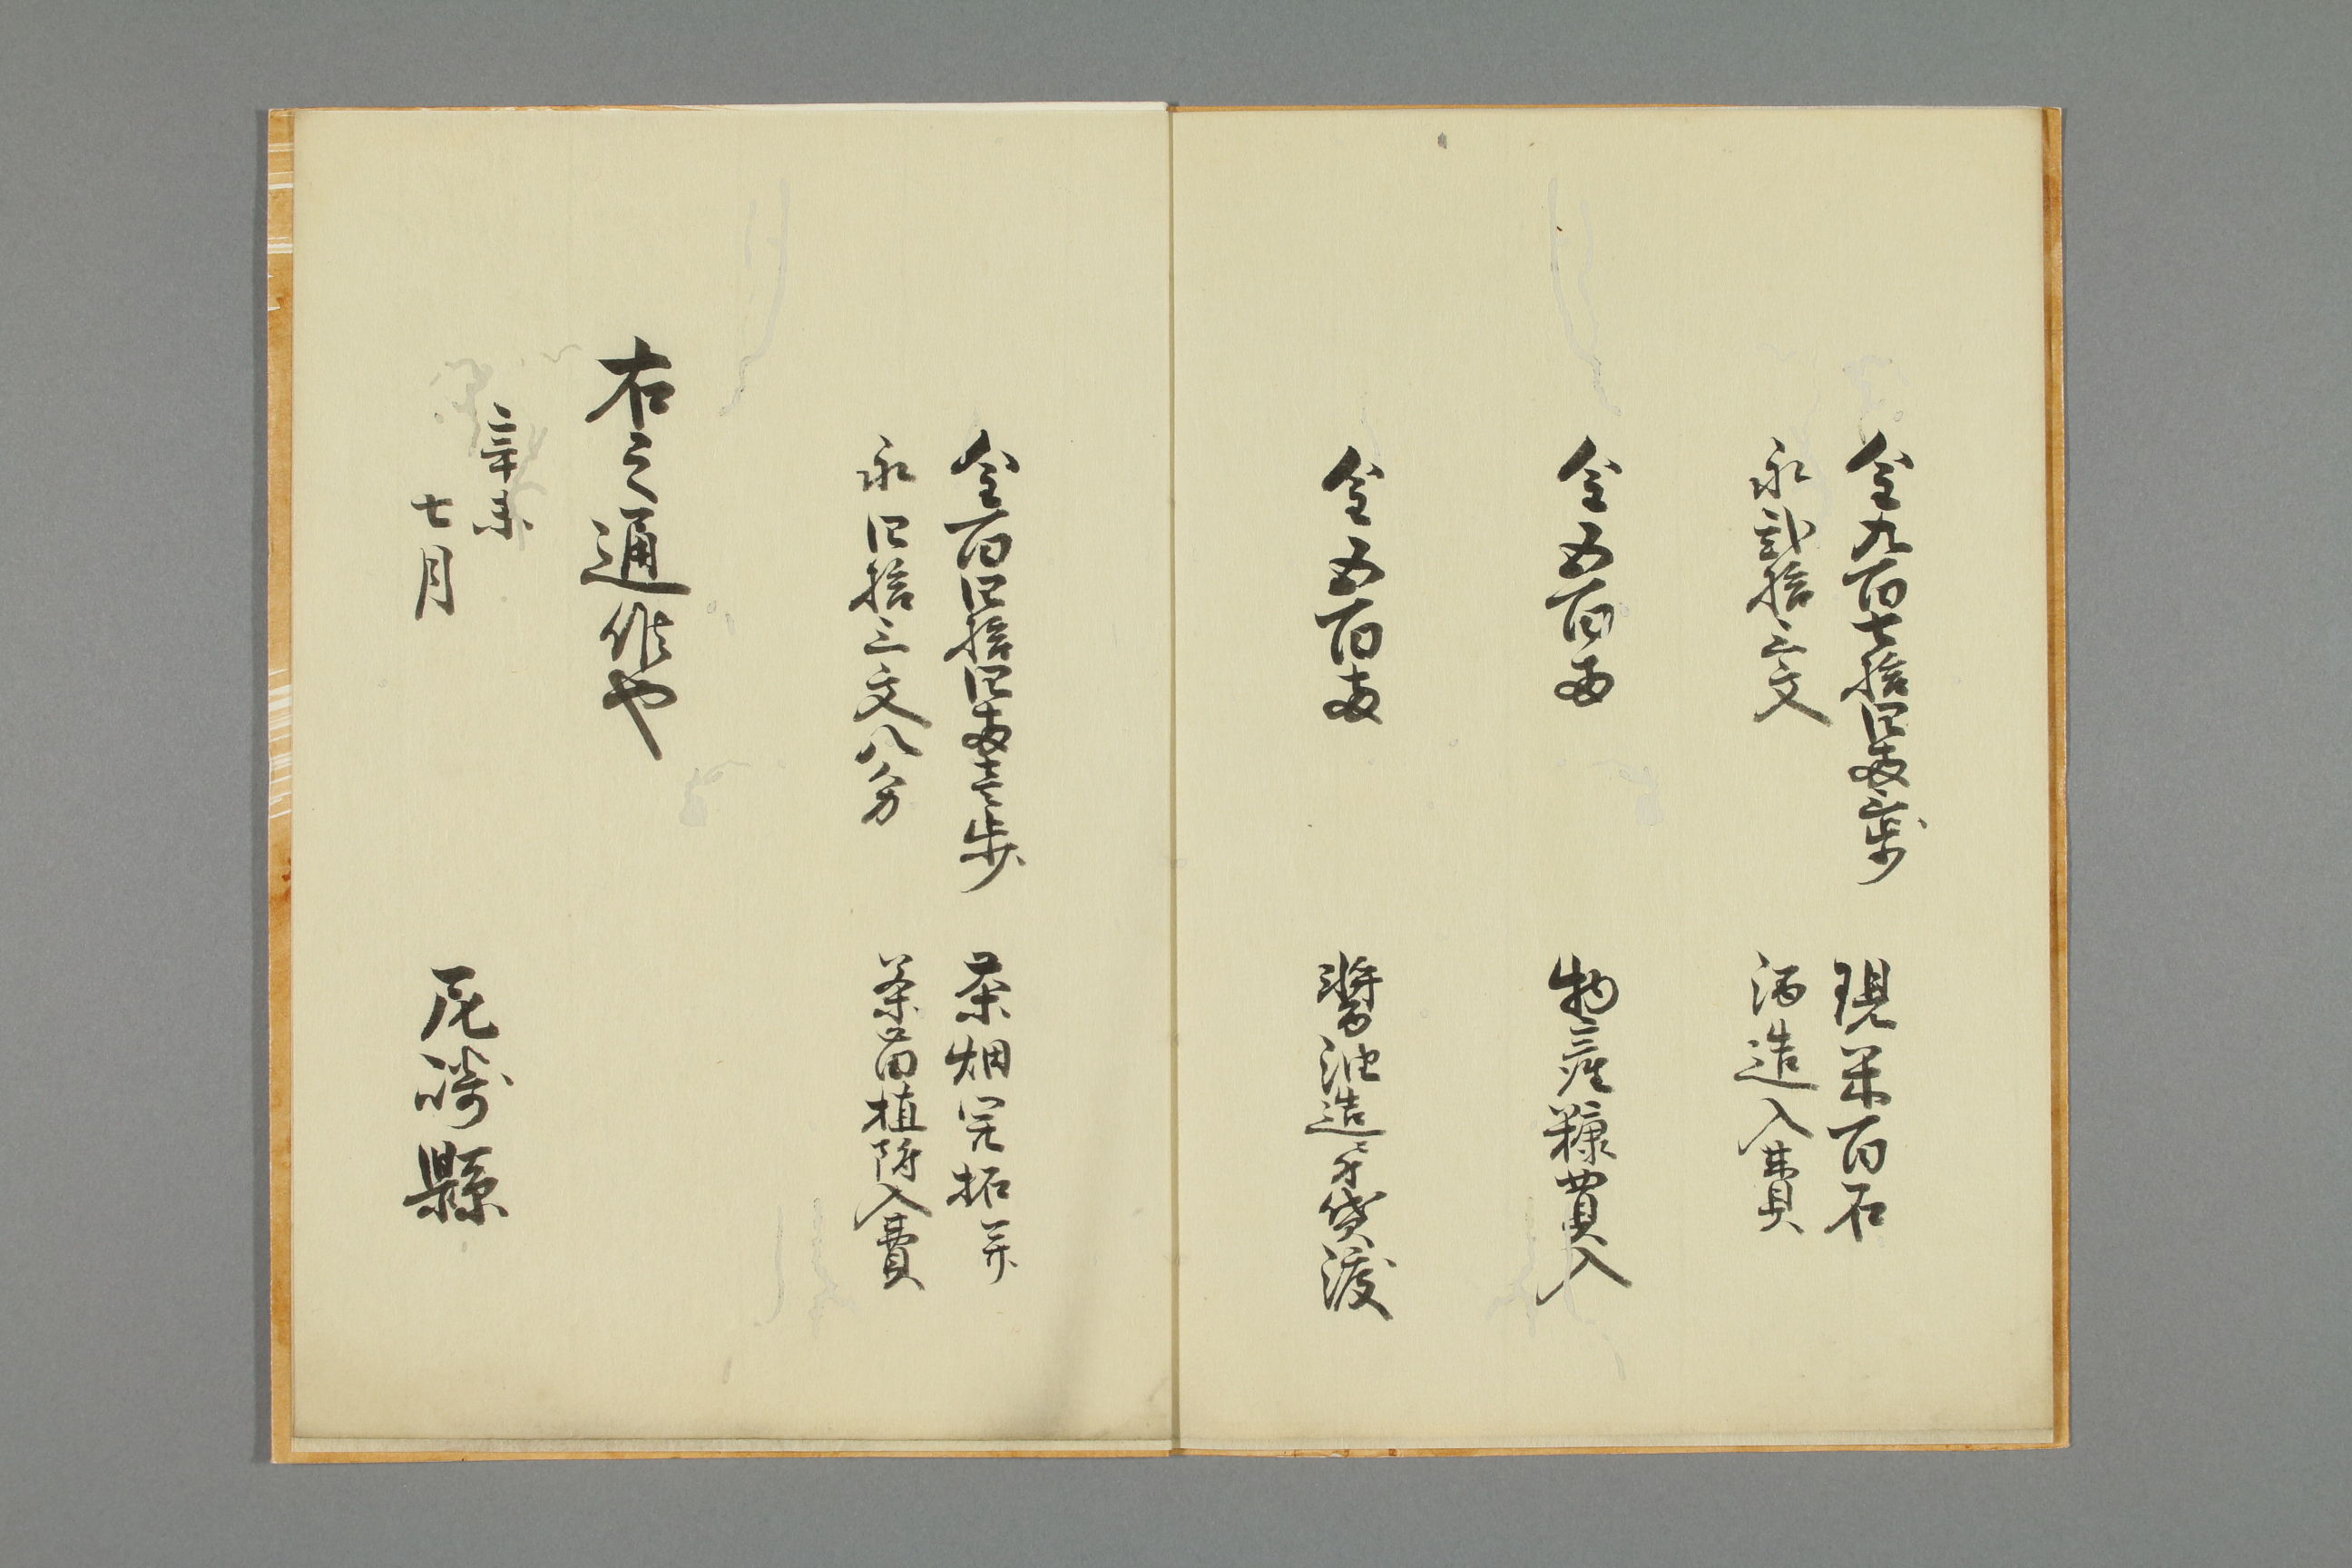 金九百七拾四両三歩 現米百石
永弐拾三文 酒造入費
金五百両 物産糠買入
金五百両 醤油造手貸渡
金百四拾四両壱歩 茶畑開拓並
永四拾三文八分 茶苗植附入費
右之通候也
辛未
七月
尼崎縣